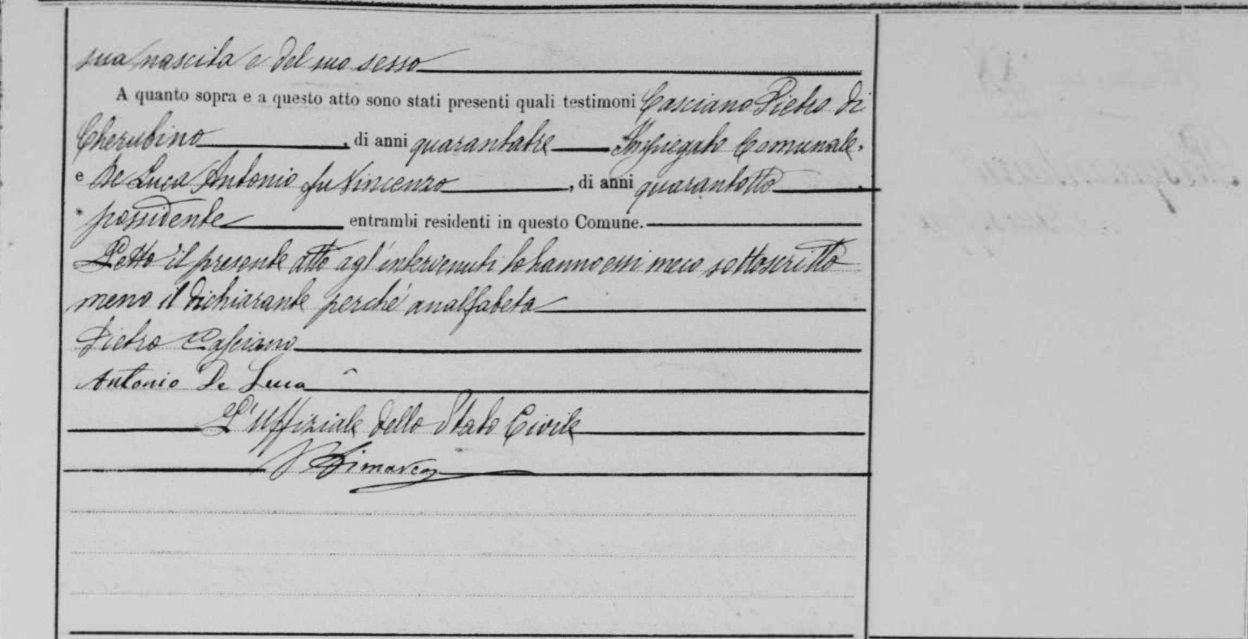 sua nascita e del suo sesso
A quanto sopra e a questo atto sono stati presenti quali testimoni Casciano Pietro di
Cherubino, di anni quarantatre Impiegato Comunale,
e De Luca Antonio fu Vincenzo, di anni quarantotto,
possidente entrambi residenti in questo Comune.
Letto il presente atto agl'intervenuti lo hanno essi meco sottoscritto
meno il dichiarante perché analfabeta
Pietro Casciano
Antonio De Luca
L'Uffiziale dello Stato Civile
Dimarco